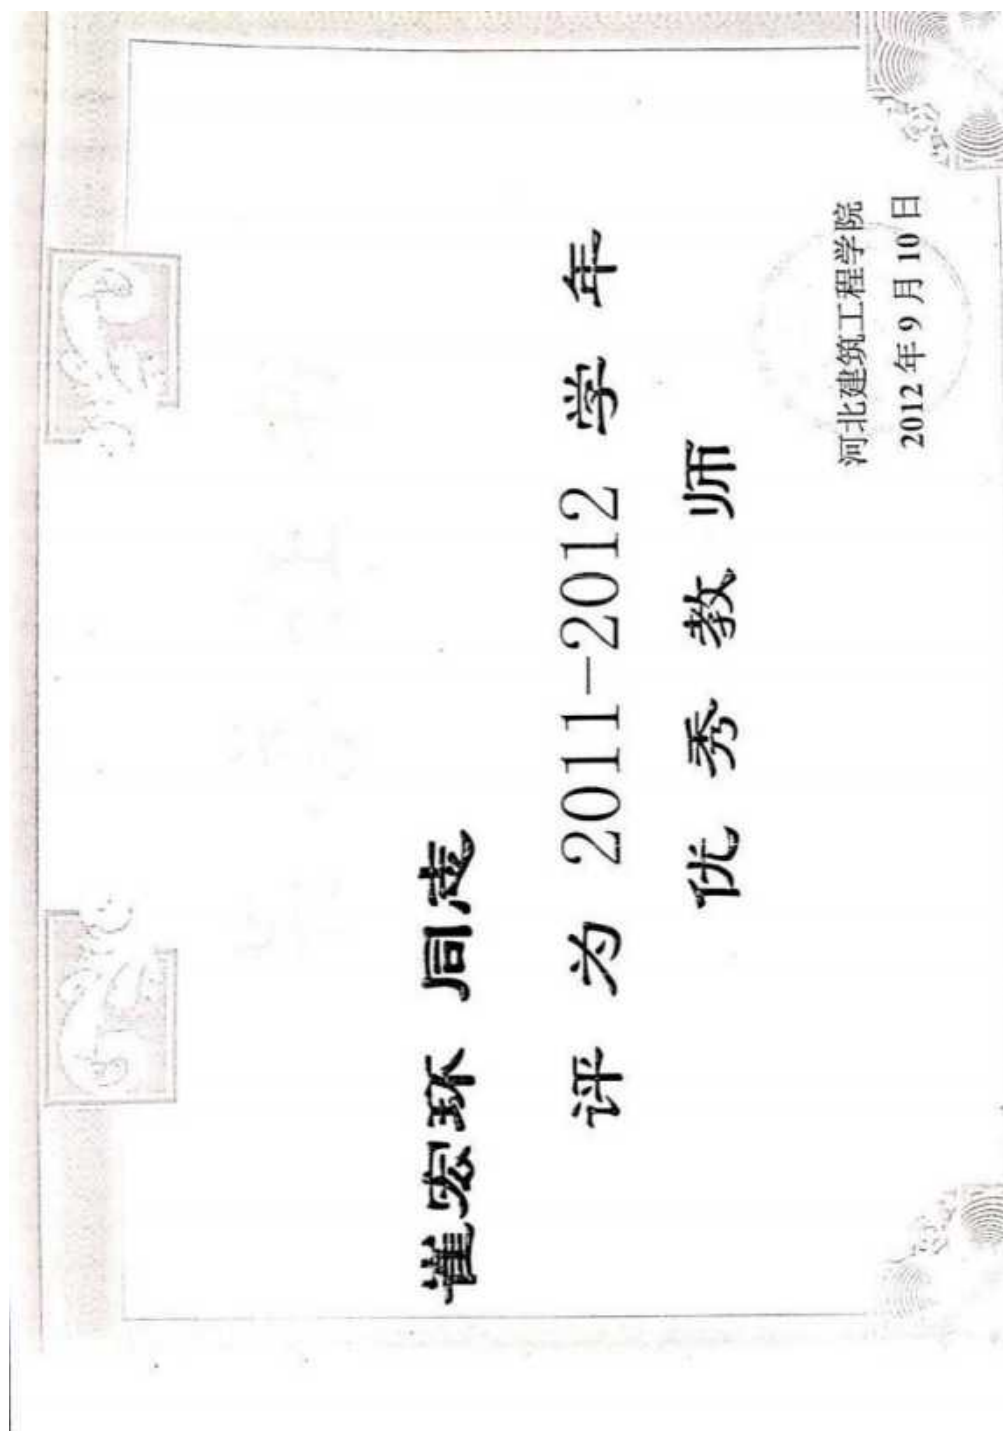 崔宏环 同志
评为 2011-2012 学年
优秀教师
河北建筑工程学院
2012年9月10日